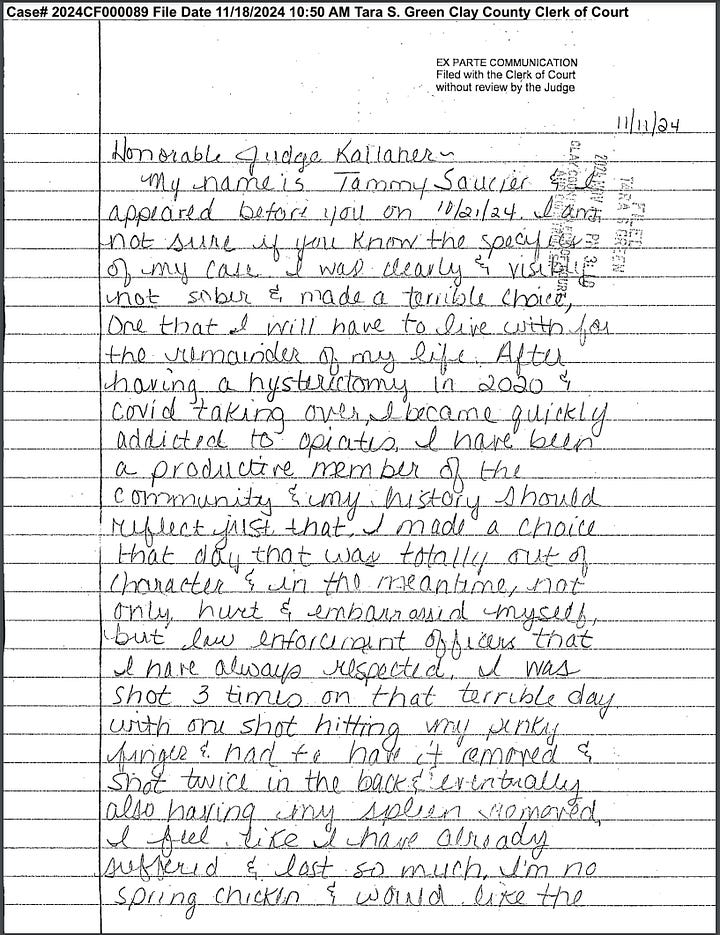 Case# 2024CF000089 File Date 11/18/2024 10:50 AM Tara S. Green Clay County Clerk of Court
EX PARTE COMMUNICATION
Filed with the Clerk of Court
without review by the Judge
11/11/24
Honorable Judge Kallaher~
My name is Tammy Saucier & I
appeared before you on 10/21/24. I am
not sure if you know the specifics
of my case. I was clearly & visibly
not sober & made a terrible choice,
One that I will have to live with for
the remainder of my life. After
having a hysterictomy in 2020 &
Covid taking over, I became quickly
addicted to opiates. I have been
a productive member of the
community & my history should
reflect just that. I made a choice
that day that was totally out of
character & in the meantime, not
only hurt & embarrassid myself,
but law enforcement officers that
I have always respected. I was
shot 3 times on that terrible day
with one shot hitting my pinky
finger & had to have it removed &
shot twice in the back & eventually
also having my spleen removed.
I feel like I have already
suffered & lost so much. I'm no
spring chicken & would like the
FILED
TARA S GREEN